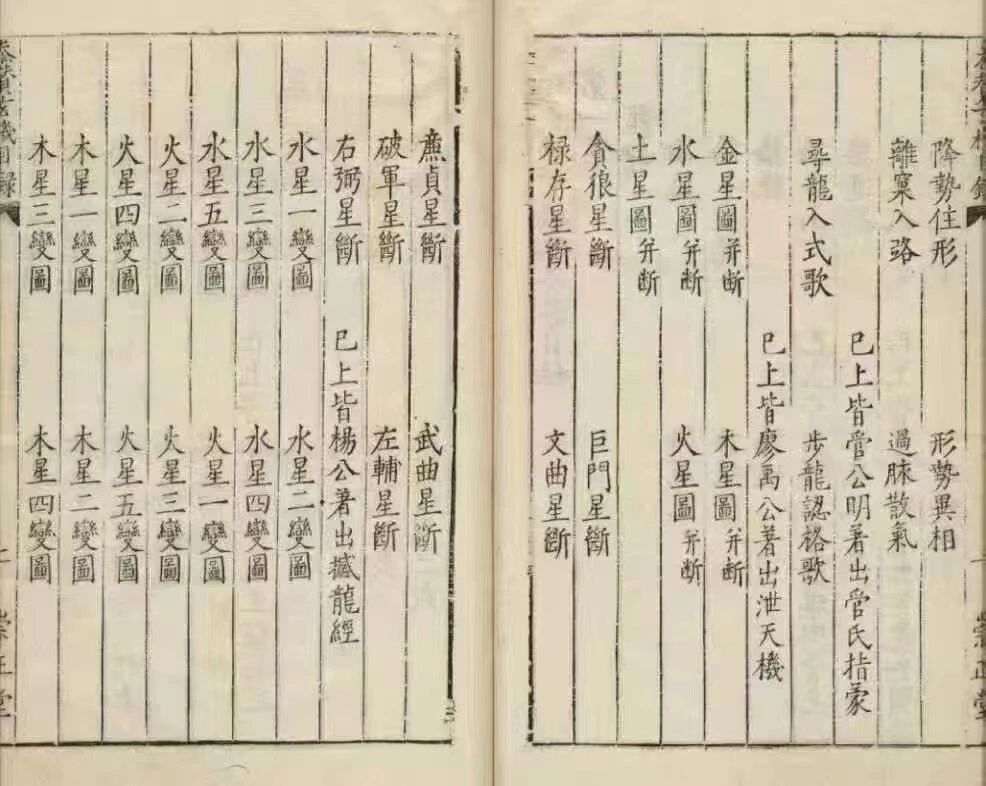 一 崇正堂
降勢住形 形勢異相
離窠入路 過脉散氣
已上皆管公明著出管氏指蒙
尋龍入式歌 步龍認格歌
已上皆廖禹公著出泄天機
金星圖并断 木星圖并断
水星圖并断 火星圖并断
土星圖并断
貪狼星斷 巨門星斷
禄存星斷 文曲星斷
廉貞星斷 武曲星斷
破軍星斷 左輔星斷
右弼星斷 已上皆楊公著出撼龍經
水星一變圖 水星二變圖
水星三變圖 水星四變圖
水星五變圖 火星一變圖
火星二變圖 火星三變圖
火星四變圖 火星五變圖
木星一變圖 木星二變圖
木星三變圖 木星四變圖
玄機目錄 崇正堂